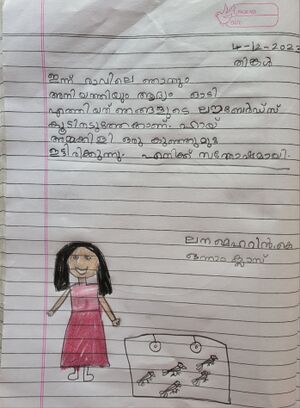 4-12-2023
തിങ്കൾ
ഇന്ന് രാവിലെ ഞാനും
അനിയത്തിയും ആദ്യം ഓടി
ഞങ്ങളുടെ ലൗബേർഡ്സ്
കൂടിനടുത്തേക്കാണ്. ഹായ്
അമ്മക്കിളി ഒരു കുഞ്ഞുമുട്ട
ഇട്ടിരിക്കുന്നു. എനിക്ക് സന്തോഷമായി.
ലന മെഹറിൻ.കെ
ഒന്നാം ക്ലാസ്